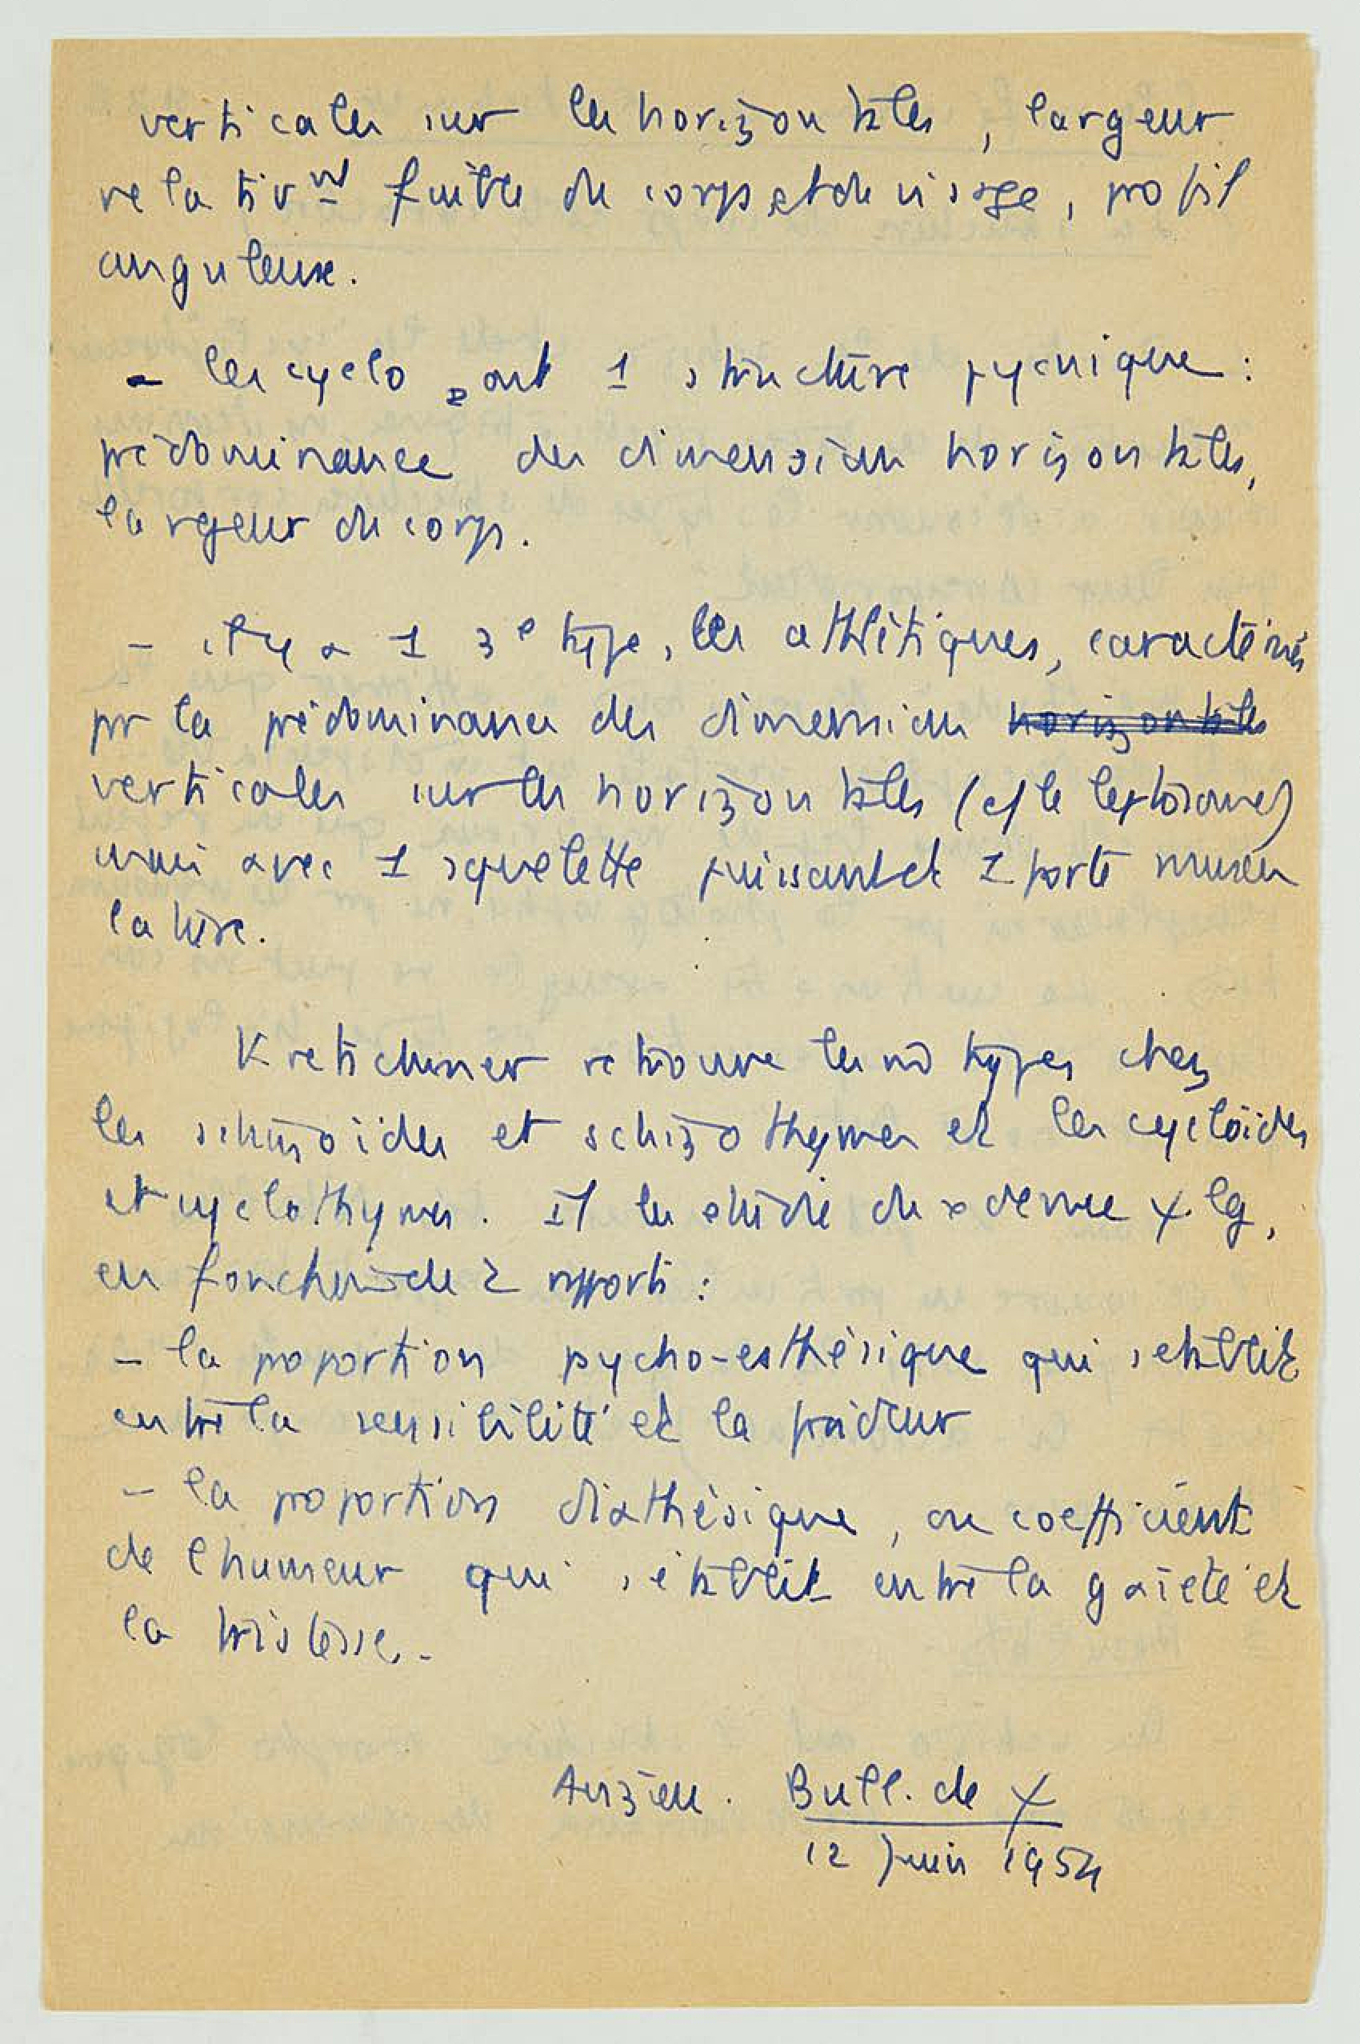 verticales sur les horizontales, largeur
relativnt faible du corps et du visage, profil
anguleux.
- les cyclo ont 1 structure pycnique :
prédominance des dimensions horizontales,
largeur du corps.
- il y a 1 3e type, les athlétiques, caractérisés
pr la prédominance des dimensions horizontales
verticales sur les horizontales (cf le leptosome)
mais avec 1 squelette puissant et 1 forte muscu
lature.
Kretschmer retrouve les mô types chez
les schizoïdes et schizothymes et les cycloïdes
et cyclothymes. Il les étudie du
en fonction de 2 rapports :
- la proportion psycho-esthésique qui s'établit
entre la sensibilité et la froideur
- la proportion diathésique, ou coefficient
de l'humeur qui s'établit entre la gaieté et
la tristesse. -
Anzieu. Bull. de ψ
12 juin 1954